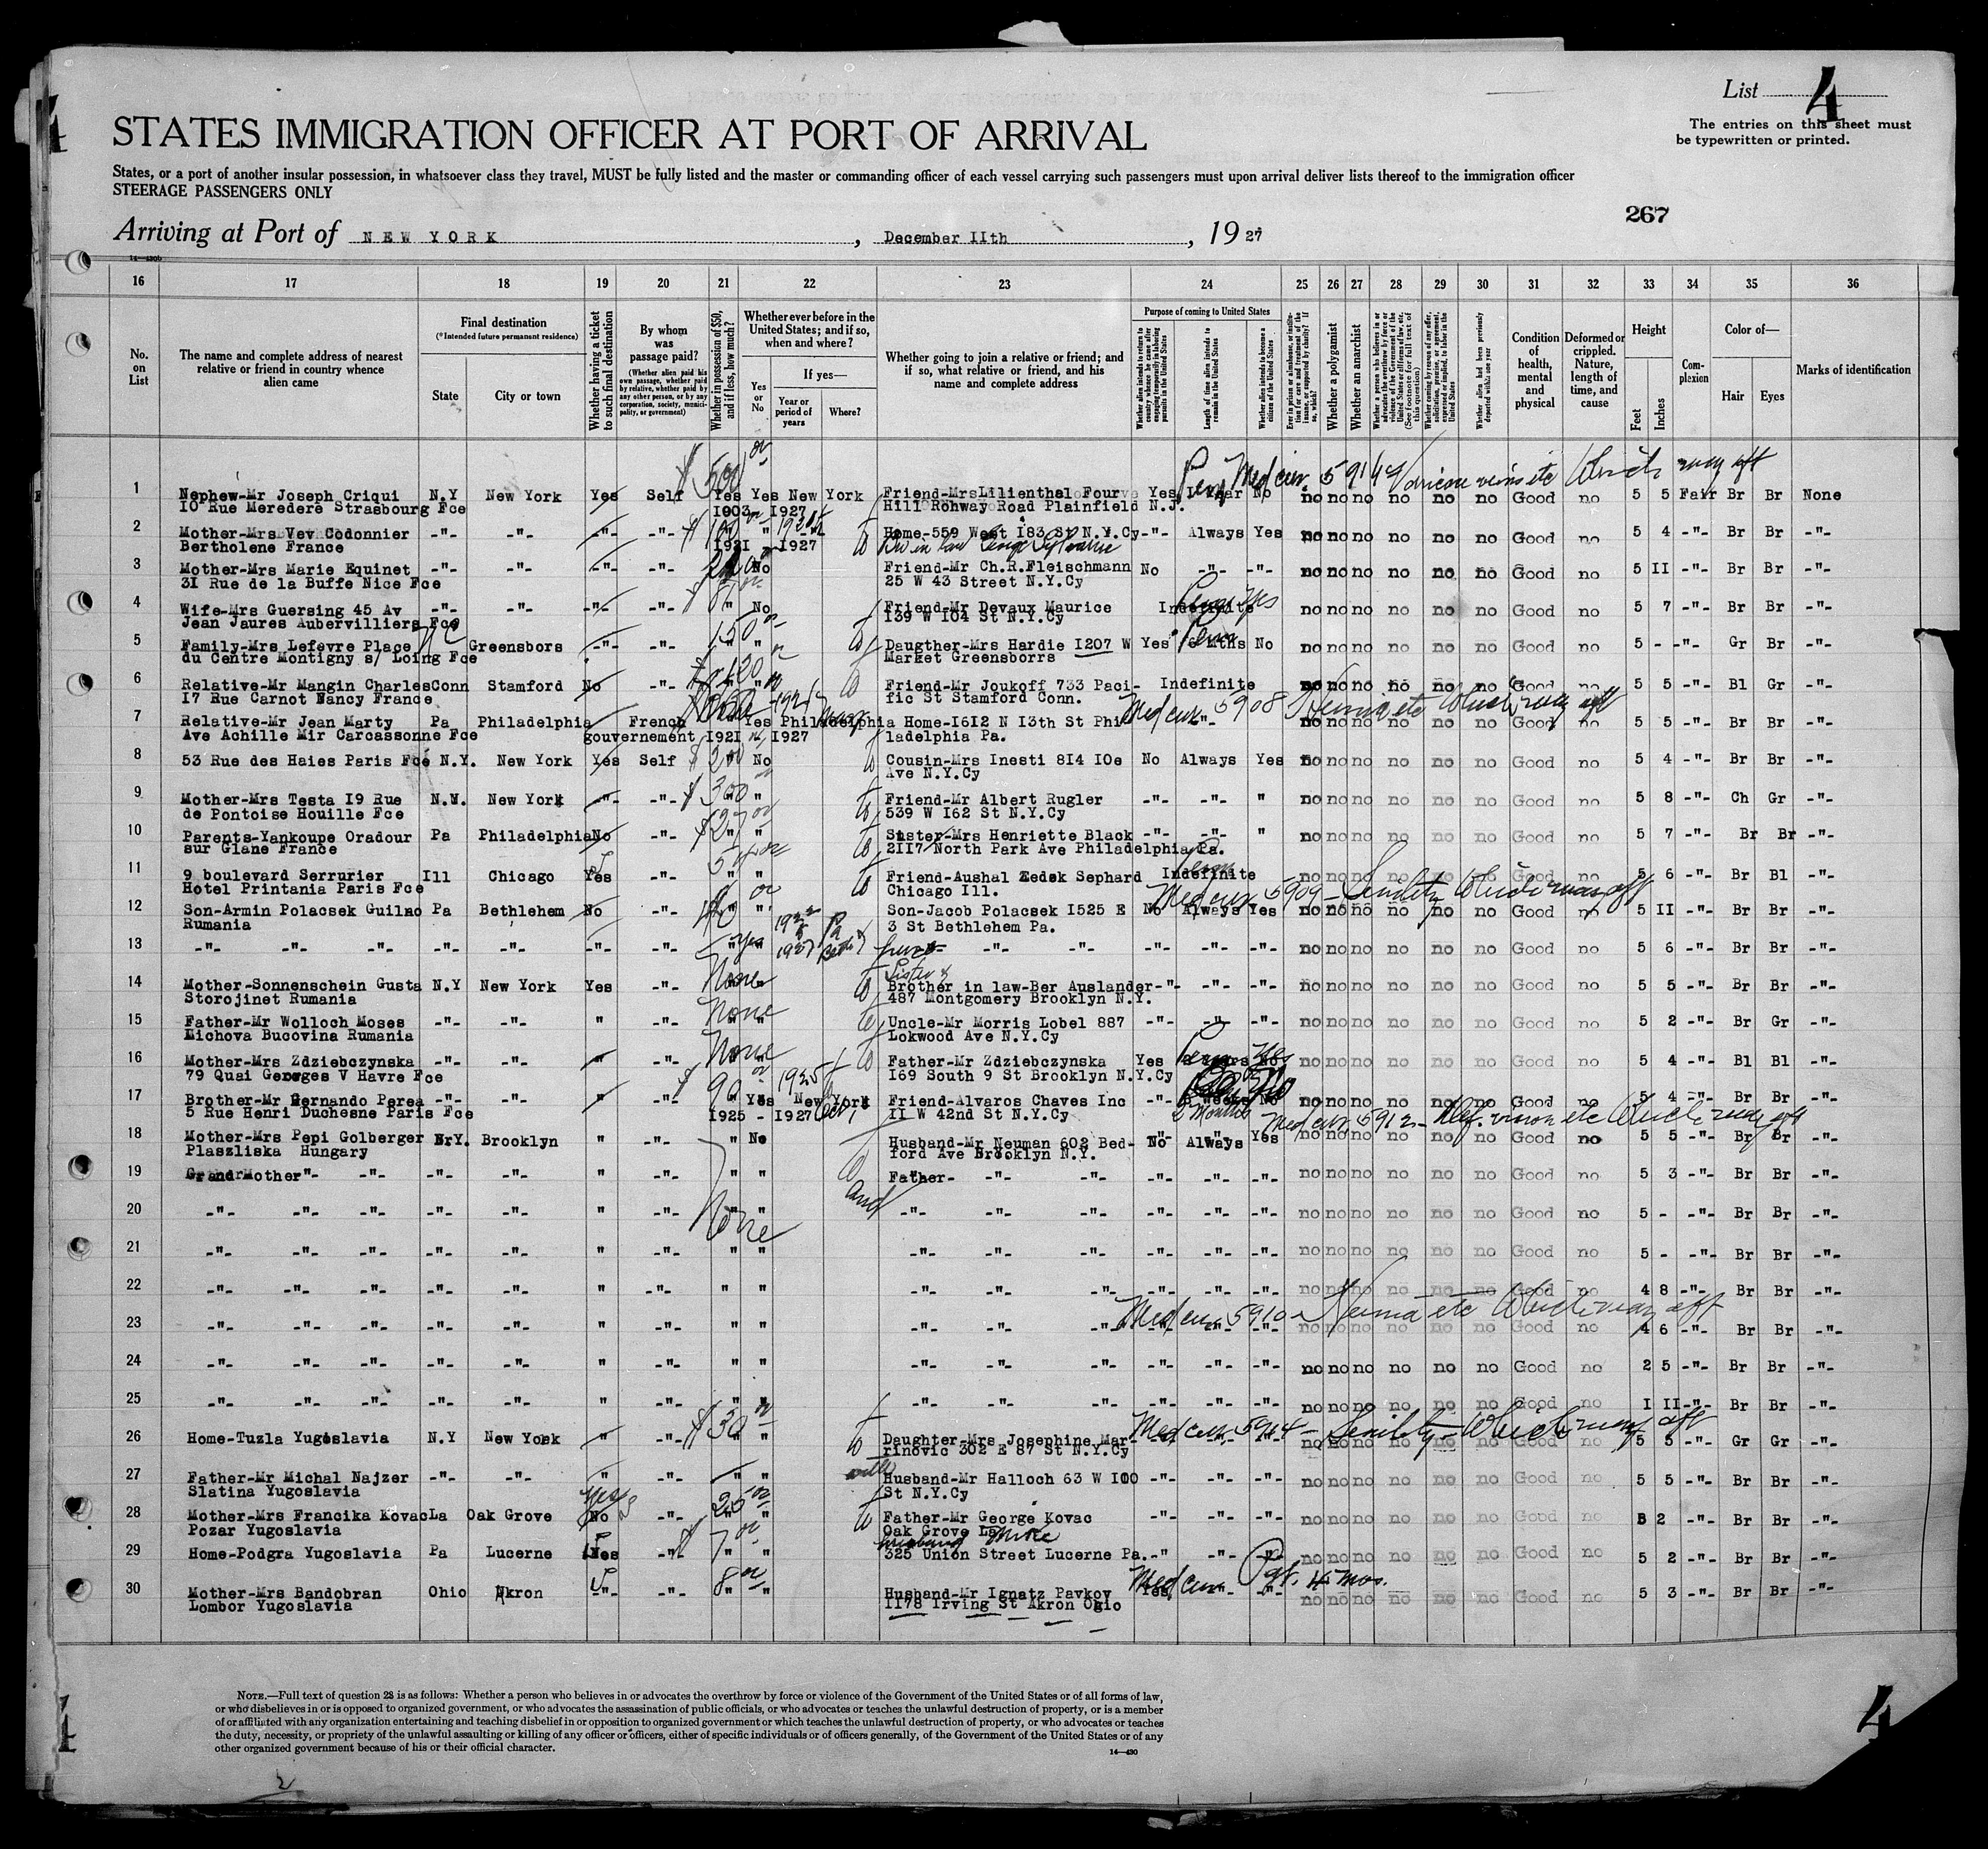 List 4
The entries on this sheet must
be typewritten or printed.
STATES IMMIGRATION OFFICER AT PORT OF ARRIVAL
States, or a port of another insular possession, in whatsoever class they travel, MUST be fully listed and the master or commanding officer of each vessel carrying such passengers must upon arrival deliver lists thereof to the immigration officer
STEERAGE PASSENGERS ONLY
267
Arriving at Port of NEW YORK, December IIth, 19 27
14—430b
16 17 18 19 20 21 22 23 24 25 26 27 28 29 30 31 32 33 34 35 36
No. on List
The name and complete address of nearest relative or friend in country whence alien came
Final destination
(*Intended future permanent residence)
State
City or town
Whether having a ticket to such final destination
By whom was passage paid?
(Whether alien paid his own passage, whether paid by relative, whether paid by any other person, or by any corporation, society, municipality, or government)
Whether in possession of $50, and if less, how much?
Whether ever before in the United States; and if so, when and where?
Yes or No
If yes—
Year or period of years
Where?
Whether going to join a relative or friend; and if so, what relative or friend, and his name and complete address
Purpose of coming to United States
Whether alien intends to return to country whence he came after engaging temporarily in laboring pursuits in the United States
Length of time alien intends to remain in the United States
Whether alien intends to become a citizen of the United States
Ever in prison or almshouse, or institution for care and treatment of the insane, or supported by charity? If so, which?
Whether a polygamist
Whether an anarchist
Whether a person who believes in or advocates the overthrow by force or violence of the Government of the United States or all forms of law, etc. (See footnote for full text of this question)
Whether coming by reason of any offer, solicitation, promise, or agreement, expressed or implied, to labor in the United States
Whether alien had been previously deported within one year
Condition of health, mental and physical
Deformed or crippled. Nature, length of time, and cause
Height
Feet
Inches
Complexion
Color of—
Hair
Eyes
Marks of identification
$500 Med cer. 59144 Varicose veins etc Which may aff
1 Nephew-Mr Joseph Criqui N.Y New York Yes Self Yes Yes New York Friend-MrsLilienthal Four Yes I Year No no no no no no no Good no 5 5 Fair Br Br None
IO Rue Meredere Strasbourg Fce I903 I927 Hill Rohway Road Plainfield N.J.
2 Mother-Mrs Vev Codonnier -"- -"- -"- -"- " " Home-559 West I83 St N.Y.Cy -"- Always Yes no no no no no no Good no 5 4 -"- Br Br -"-
Bertholene France I92I - I927
3 Mother-Mrs Marie Equinet -"- -"- -"- -"- No Friend-Mr Ch.R.Fleischmann No -"- -"- no no no no no no Good no 5 II -"- Br Br -"-
3I Rue de la Buffe Nice Fce 25 W 43 Street N.Y.Cy
4 Wife-Mrs Guersing 45 Av -"- -"- -"- -"- " No Friend-Mr Devaux Maurice Indefinite Yes no no no no no no Good no 5 7 -"- Br Br -"-
Jean Jaures Aubervilliers Fce I39 W I04 St N.Y.Cy
5 Family-Mrs Lefevre Place Greensbors -"- -"- 150 " " Daugther-Mrs Hardie I207 W Yes 6 Mths No no no no no no no Good no 5 - -"- Gr Br -"-
du Centre Montigny s/ Loing Fce Market Greensborrs
6 Relative-Mr Mangin Charles Conn Stamford No -"- 120 " " Friend-Mr Joukoff 733 Paci- Indefinite no no no no no no Good no 5 5 -"- Bl Gr -"-
I7 Rue Carnot Nancy France fic St Stamford Conn.
Med cer. 5908 Hernia etc Which may aff
7 Relative-Mr Jean Marty Pa Philadelphia French Yes Philadelphia Home-I6I2 N I3th St Phi -"- no no no no no no Good no 5 5 -"- Br Br -"-
Ave Achille Mir Carcassonne Fce gouvernement I92I I927 ladelphia Pa.
8 53 Rue des Haies Paris Fce N.Y. New York Yes Self $200 No Cousin-Mrs Inesti 8I4 IOe No Always Yes no no no no no no Good no 5 4 -"- Br Br -"-
Ave N.Y.Cy
9 Mother-Mrs Testa I9 Rue N.Y. New York -"- -"- $300 " " Friend-Mr Albert Rugler -"- -"- " no no no no no no Good no 5 8 -"- Ch Gr -"-
de Pontoise Houille Fce 539 W I62 St N.Y.Cy
10 Parents-Yankoupe Oradour Pa Philadelphia No -"- $27 " " Sister-Mrs Henriette Black -"- -"- " no no no no no no Good no 5 7 -"- Br Br -"-
sur Glane France 2II7 North Park Ave Philadelphia Pa.
11 9 boulevard Serrurier Ill Chicago Yes -"- " " Friend-Aushal Zedek Sephard Indefinite no no no no no no Good no 5 6 -"- Br Bl -"-
Hotel Printania Paris Fce Chicago Ill.
Med cer. 5909 - Senility Which may aff
12 Son-Armin Polacsek Guilao Pa Bethlehem No -"- " " Son-Jacob Polacsek I525 E No Always Yes no no no no no no Good no 5 II -"- Br Br -"-
Rumania 3 St Bethlehem Pa.
13 -"- -"- -"- -"- -"- -"- -"- yes 1922 1927 Pa -"- -"- -"- -"- -"- no no no no no no Good no 5 6 -"- Br Br -"-
14 Mother-Sonnenschein Gusta N.Y New York Yes -"- None Sister & Brother in law-Ber Auslander -"- -"- -"- no no no no no no Good no 5 5 -"- Br Br -"-
Storojinet Rumania 487 Montgomery Brooklyn N.Y.
15 Father-Mr Wolloch Moses -"- -"- " -"- None Uncle-Mr Morris Lobel 887 -"- -"- -"- no no no no no no Good no 5 2 -"- Br Gr -"-
Lichova Bucovina Rumania Lokwood Ave N.Y.Cy
16 Mother-Mrs Zdziebczynska -"- -"- " -"- None Father-Mr Zdziebczynska Yes No no no no no no no Good no 5 4 -"- Bl Bl -"-
79 Quai Georges V Havre Fce I69 South 9 St Brooklyn N.Y.Cy
17 Brother-Mr Hernando Perea -"- -"- " -"- $90 " Yes New York Friend-Alvaros Chaves Inc -"- No no no no no no no Good no 5 4 -"- Br Br -"-
5 Rue Henri Duchesne Paris Fce I925 - I927 II W 42nd St N.Y.Cy 2 Months
Med cer. 5912 - Def. vision etc Which may aff
18 Mother-Mrs Pepi Golberger N.Y. Brooklyn " -"- " No Husband-Mr Neuman 602 Bed- No Always Yes no no no no no no Good no 5 5 -"- Br Br -"-
Plaszliska Hungary ford Ave Brooklyn N.Y.
19 GrandMother"- -"- -"- -"- -"- " -"- Father- -"- -"- -"- -"- -"- no no no no no no Good no 5 3 -"- Br Br -"-
20 -"- -"- -"- -"- -"- " -"- None and -"- -"- -"- -"- -"- -"- no no no no no no Good no 5 - -"- Br Br -"-
21 -"- -"- -"- -"- -"- " -"- " " -"- -"- -"- -"- -"- -"- no no no no no no Good no 5 - -"- Br Br -"-
22 -"- -"- -"- -"- -"- " -"- " " -"- -"- -"- -"- -"- -"- no no no no no no Good no 4 8 -"- Br Br -"-
Med cer. 5910 - Hernia etc Which may aff
23 -"- -"- -"- -"- -"- " -"- " " -"- -"- -"- -"- -"- -"- no no no no no no Good no 4 6 -"- Br Br -"-
24 -"- -"- -"- -"- -"- " -"- " " -"- -"- -"- -"- -"- -"- no no no no no no Good no 2 5 -"- Br Br -"-
25 -"- -"- -"- -"- -"- " -"- " " -"- -"- -"- -"- -"- -"- no no no no no no Good no I II -"- Br Br -"-
Med cer. 5914 - Senility - Which may aff
26 Home-Tuzla Yugoslavia N.Y New York " -"- $30 " Daughter-Mrs Josephine Mar- -"- -"- -"- no no no no no no Good no 5 5 -"- Gr Gr -"-
rinovic 302 E 87 St N.Y.Cy
27 Father-Mr Michal Najzer -"- -"- " -"- " " with Husband-Mr Halloch 63 W I00 -"- -"- -"- no no no no no no Good no 5 5 -"- Br Br -"-
Slatina Yugoslavia St N.Y.Cy
28 Mother-Mrs Francika Kovac La Oak Grove yes No -"- 25 " Father-Mr George Kovac -"- -"- -"- no no no no no no Good no 5 2 -"- Br Br -"-
Pozar Yugoslavia Oak Grove La
husband Mike
29 Home-Podgra Yugoslavia Pa Lucerne Yes -"- $7 " " 325 Union Street Lucerne Pa. -"- -"- -"- no no no no no no Good no 5 2 -"- Br Br -"-
Med cer. Pgt. 4 mos.
30 Mother-Mrs Bandobran Ohio Akron -"- -"- 8 " " Husband-Mr Ignatz Pavkov Yes -"- -"- no no no no no no Good no 5 3 -"- Br Br -"-
Lombor Yugoslavia II78 Irving St Akron Ogio
NOTE.—Full text of question 28 is as follows: Whether a person who believes in or advocates the overthrow by force or violence of the Government of the United States or of all forms of law,
or who disbelieves in or is opposed to organized government, or who advocates the assassination of public officials, or who advocates or teaches the unlawful destruction of property, or is a member
of or affiliated with any organization entertaining and teaching disbelief in or opposition to organized government or which teaches the unlawful destruction of property, or who advocates or teaches
the duty, necessity, or propriety of the unlawful assaulting or killing of any officer or officers, either of specific individuals or of officers generally, of the Government of the United States or of any
other organized government because of his or their official character.
14—430
4
2